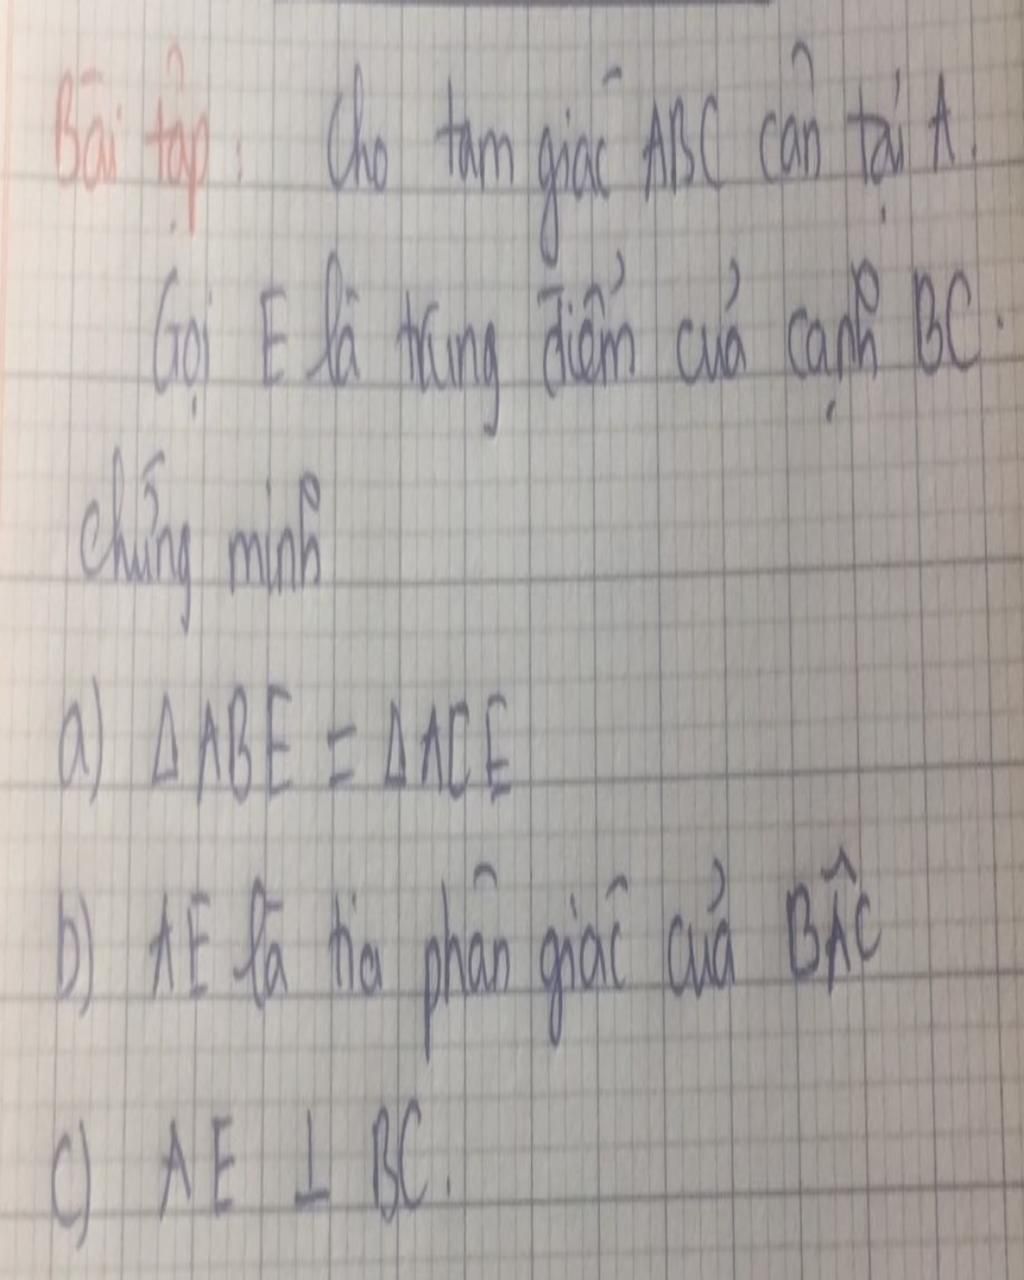 Bài tập: Cho tam giác ABC cân tại A.
Gọi E là trung điểm của cạnh BC.
Chứng minh
a) Δ ABE = Δ ACE
b) AE là tia phân giác của BÂC
c) AE ⊥ BC.